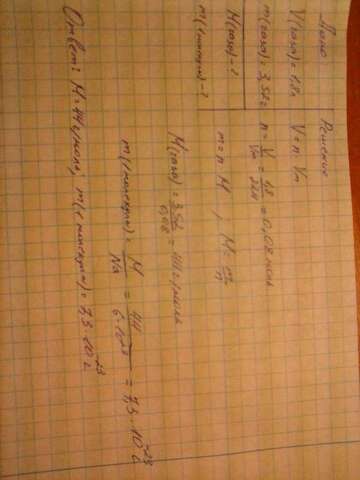 Дано
V(газа) = 1,8л
m(газа) = 3,52г
M(газа) - ?
m(1 молекулы) - ?
Решение
V = n Vm
n = V/Vm = 1,8/22,4 = 0,08 моль
m = n M , M = m/n
M(газа) = 3,52/0,08 = 44 г/моль
m(1 молекулы) = M/Na = 44/6·10²³ = 7,3·10⁻²³ г
Ответ: M = 44 г/моль, m(1 молекулы) = 7,3·10⁻²³ г